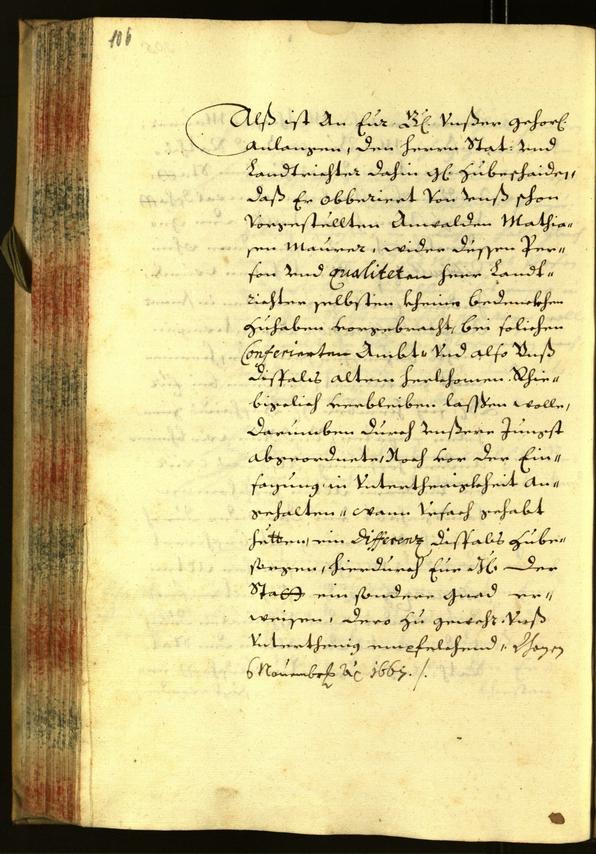 106
Alß ist An Eur Unßer gehorß:
anlangen, den herrn Stat: und
Landtrichter dahin zubeschaiden,
daß Er obberiert Von unß schon
Vorgestellten Anwalden Mathia-
sen Maurer, wider dessen Per-
son und qualiteten herr Landt-
richter selbsten khein bedenckhen
zuhaben vorgebracht, bei solichen
Conferierten Ambt und also Unß
disfals altem herkhomen
verbleiben lassen wolle,
darumben durch unßere Jungst
abgeordnete, Noch vor der Ein-
in Unterthenigkheit an-
gehalten, wann Ursach gehabt
hetten, ein differenz disfals zube-
sorgen, hierdurch Eur der
Statt ein sondere gnad er-
weisen, dero zu gewehr Unß
Unterthenig empfelchend,
6 Novemb: Ao 1667 ./.